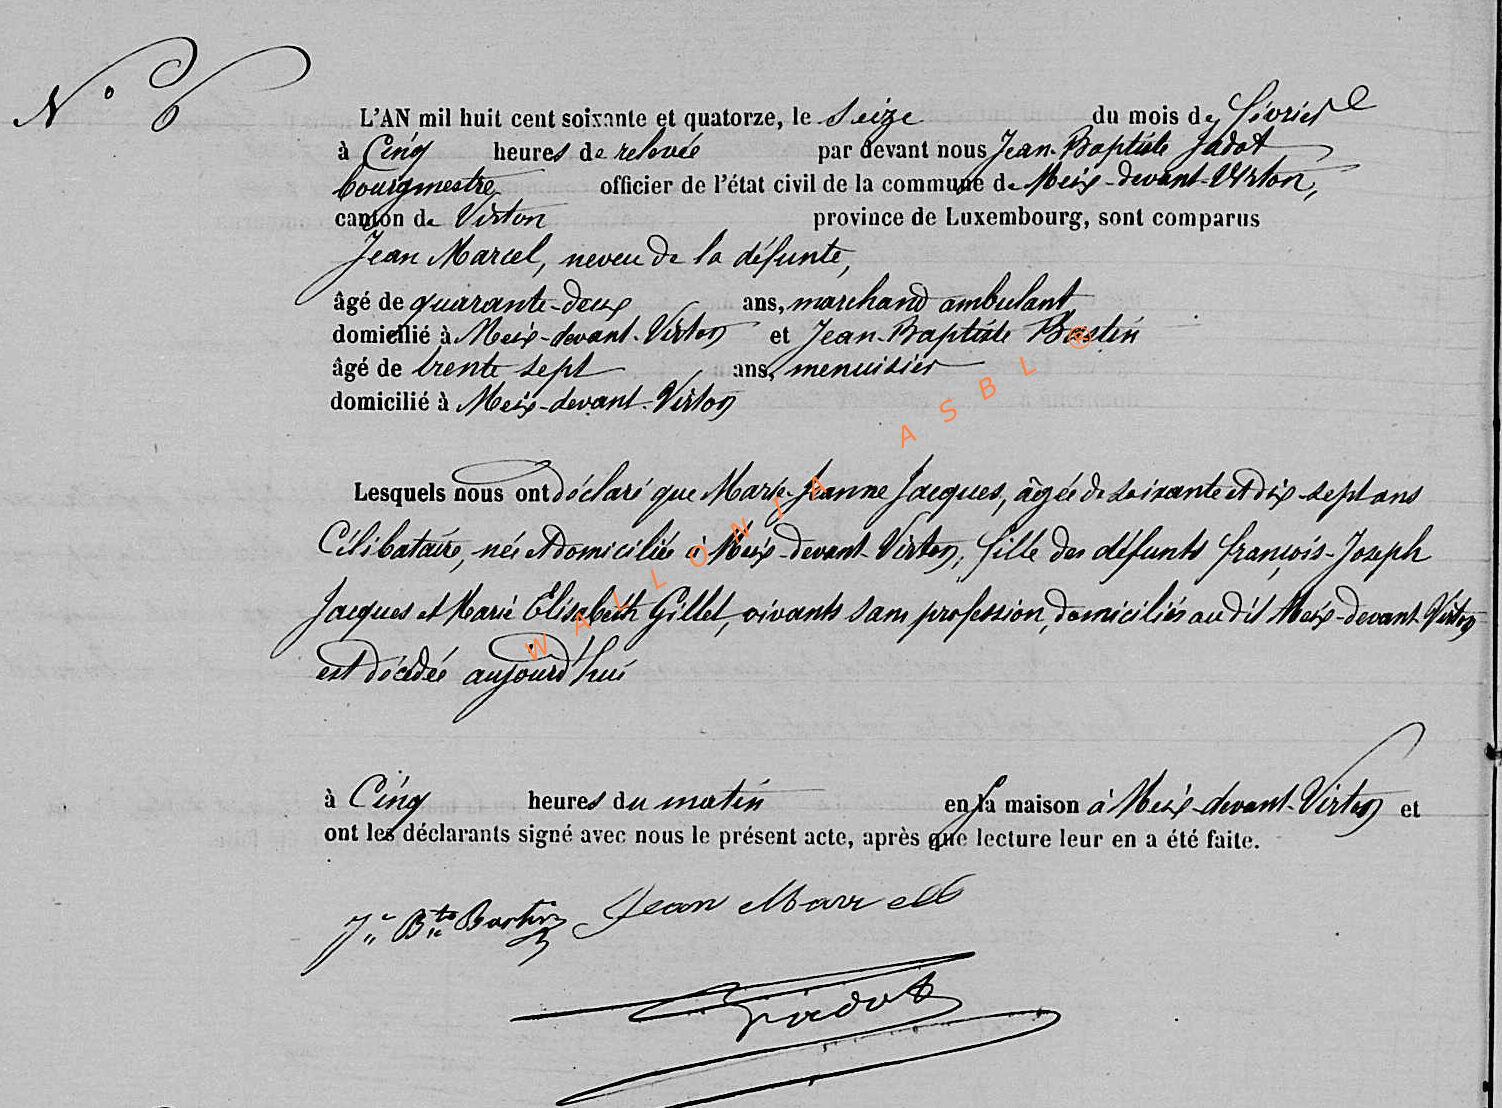 N° 6
L'AN mil huit cent soixante et quatorze, le seize du mois de février
à Cinq heures de relevée par devant nous Jean-Baptiste Jadot
bourgmestre officier de l'état civil de la commune de Meix-devant-Virton,
canton de Virton province de Luxembourg, sont comparus
Jean Marcel, neveu de la défunte,
âgé de quarante-deux ans, marchand ambulant
domicilié à Meix-devant-Virton et Jean-Baptiste Bastin
âgé de trente sept ans, menuisier
domicilié à Meix-devant-Virton
Lesquels nous ont déclaré que Marie-Jeanne Jacques, âgée de soixante et dix-sept ans
Célibataire, née et domiciliée à Meix-devant-Virton, fille des défunts françois-Joseph
Jacques et Marie Elisabeth Gillet, vivants sans profession, domiciliés audit Meix-devant-Virton
est décédée aujourd'hui
à Cinq heures du matin en sa maison à Meix-devant-Virton et
ont les déclarants signé avec nous le présent acte, après que lecture leur en a été faite.
Jn Bte Bastin Jean Marcell
Jadot
WALLONIA ASBL ®